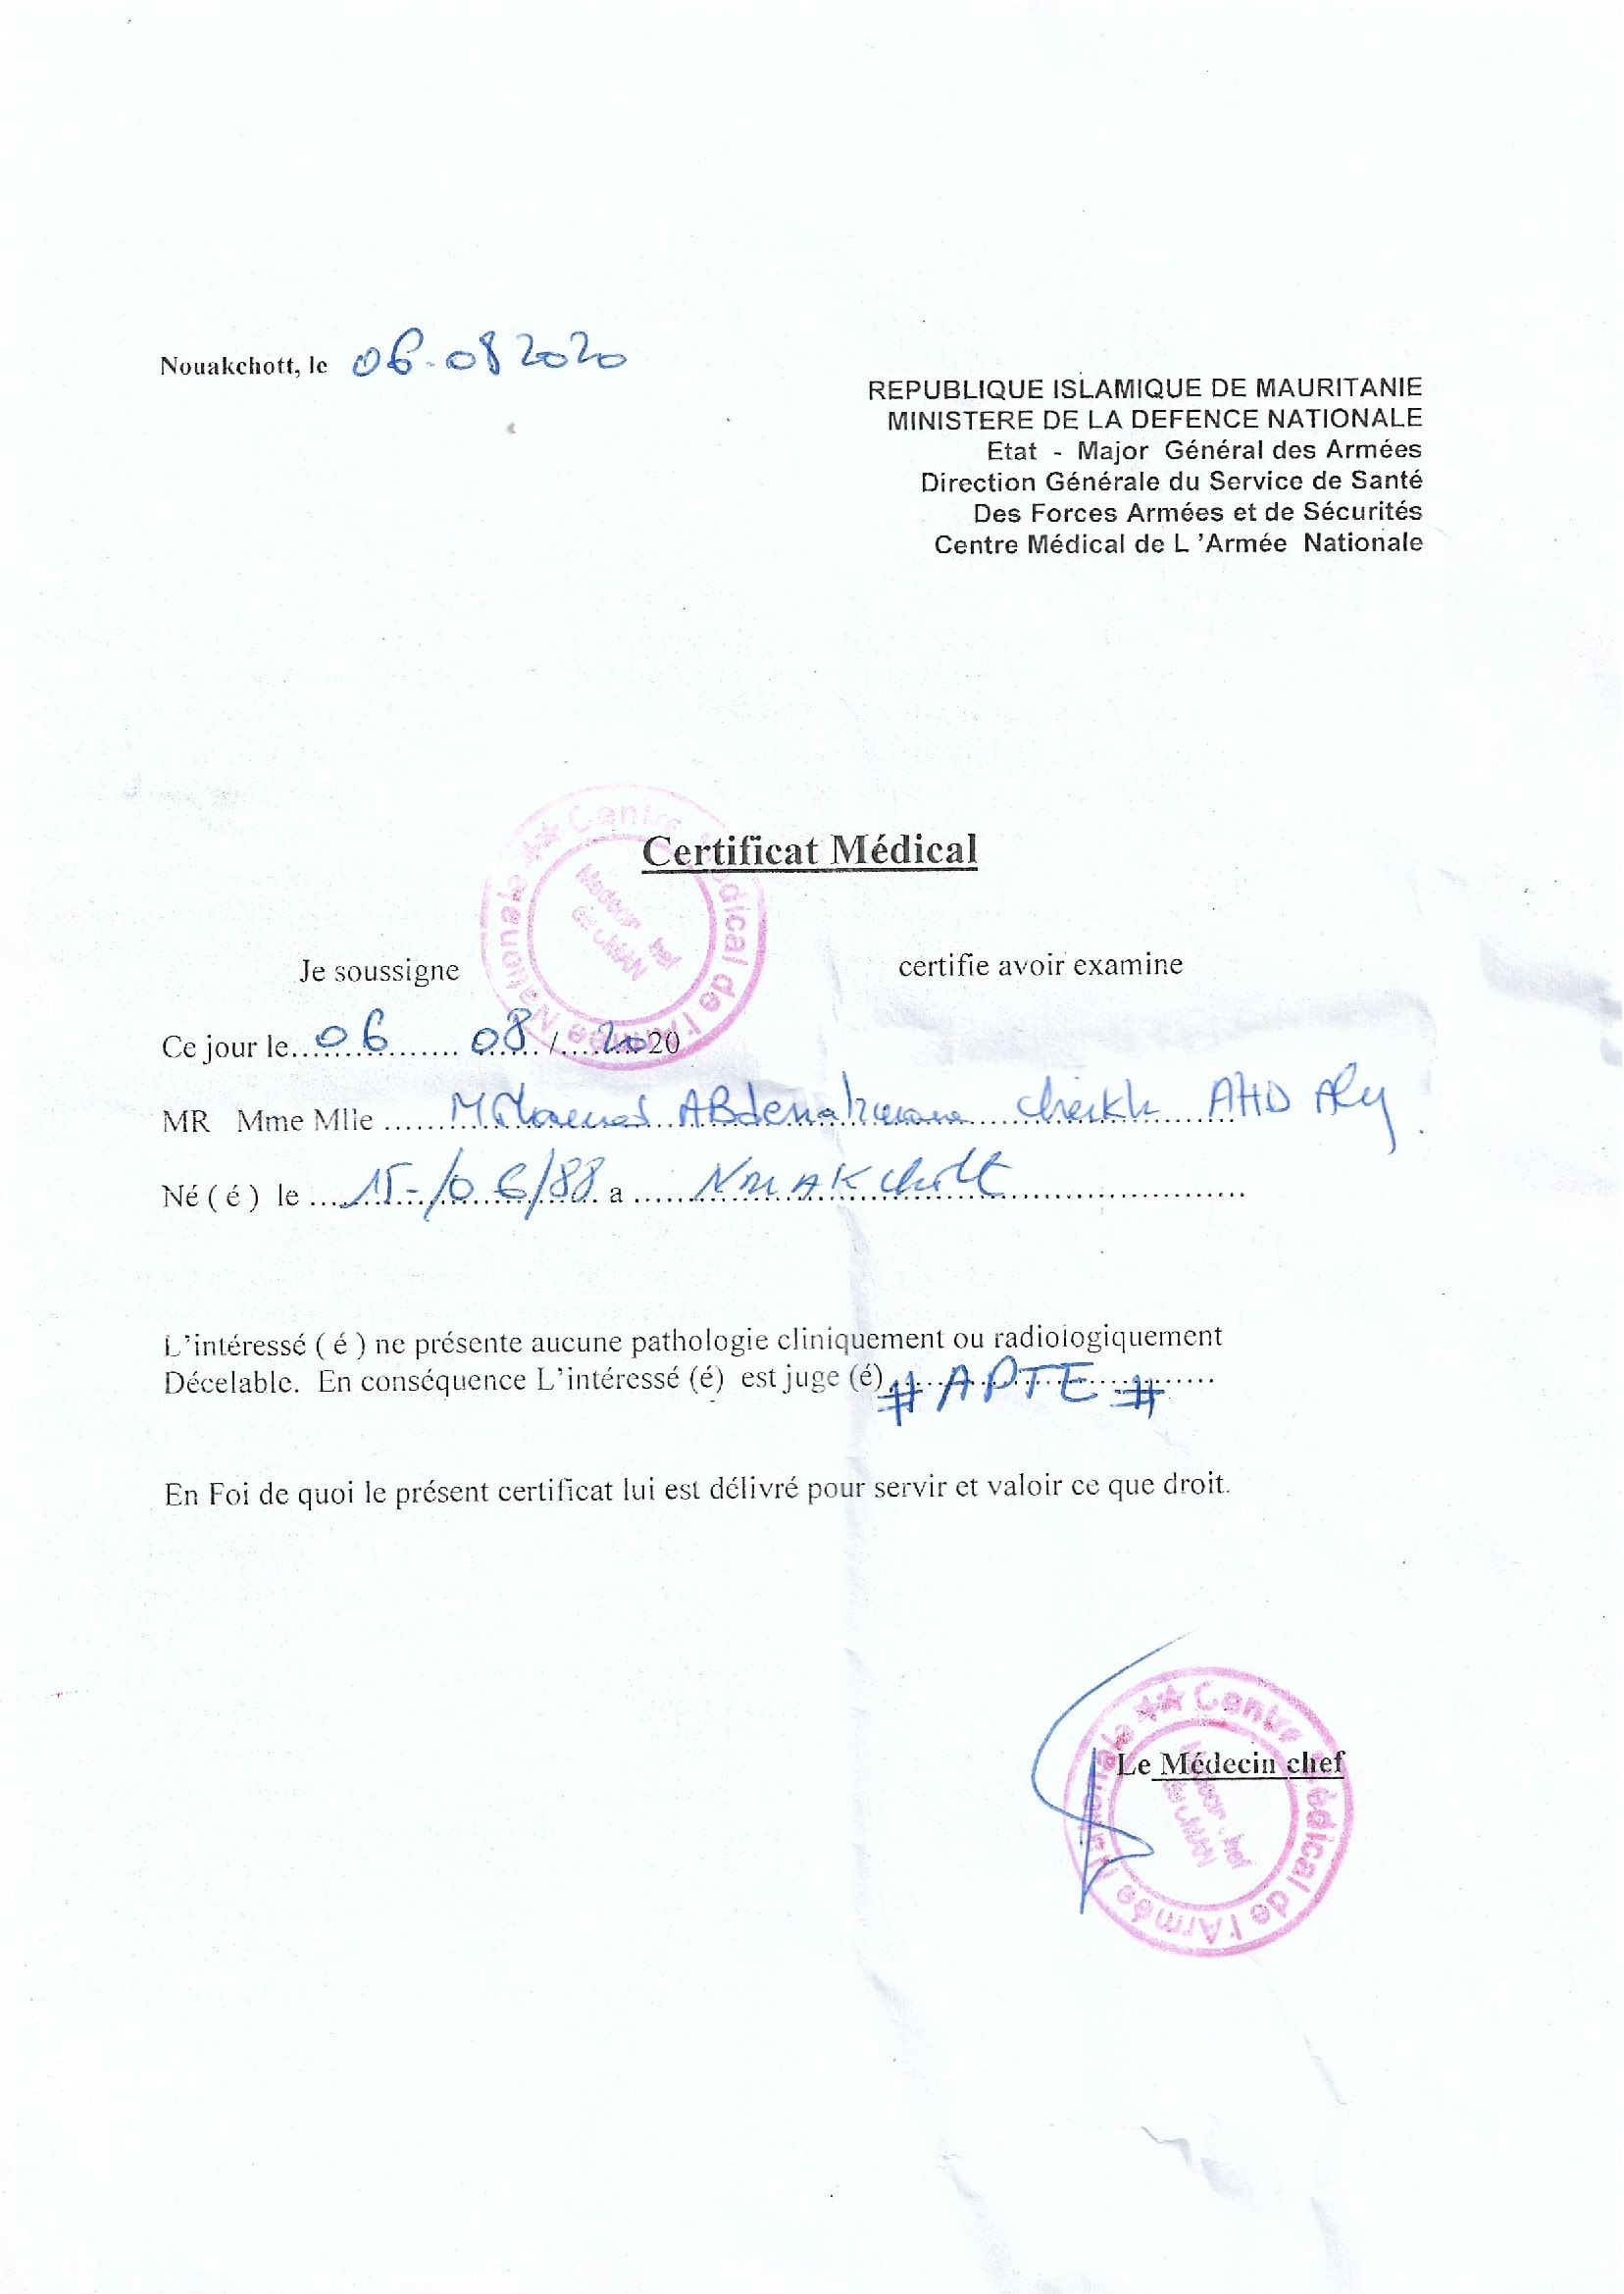 Nouakchott, le 06-08 2020
REPUBLIQUE ISLAMIQUE DE MAURITANIE
MINISTERE DE LA DEFENCE NATIONALE
Etat - Major Général des Armées
Direction Générale du Service de Santé
Des Forces Armées et de Sécurités
Centre Médical de L 'Armée Nationale
Certificat Médical
Je soussigne certifie avoir examine
Ce jour le 06 08 / 2020
MR Mme Mlle Mohamed ABderrahmane cheikh AHD Aly
Né ( é ) le 15-/06/88 a Nouakchott
L'intéressé ( é ) ne présente aucune pathologie cliniquement ou radiologiquement
Décelable. En conséquence L'intéressé (é) est juge (é) # APTE #
En Foi de quoi le présent certificat lui est délivré pour servir et valoir ce que droit.
Le Médecin chef
Centre Médical de l'Armée Nationale **